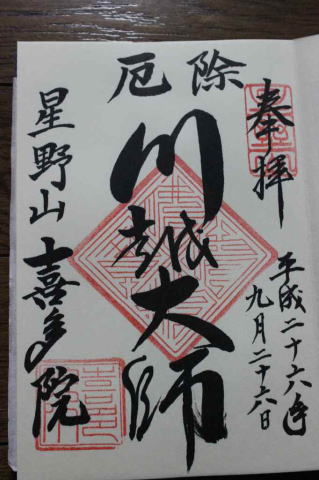 奉拝
平成二十六年
九月二十六日
厄除
川越大師
星野山喜多院